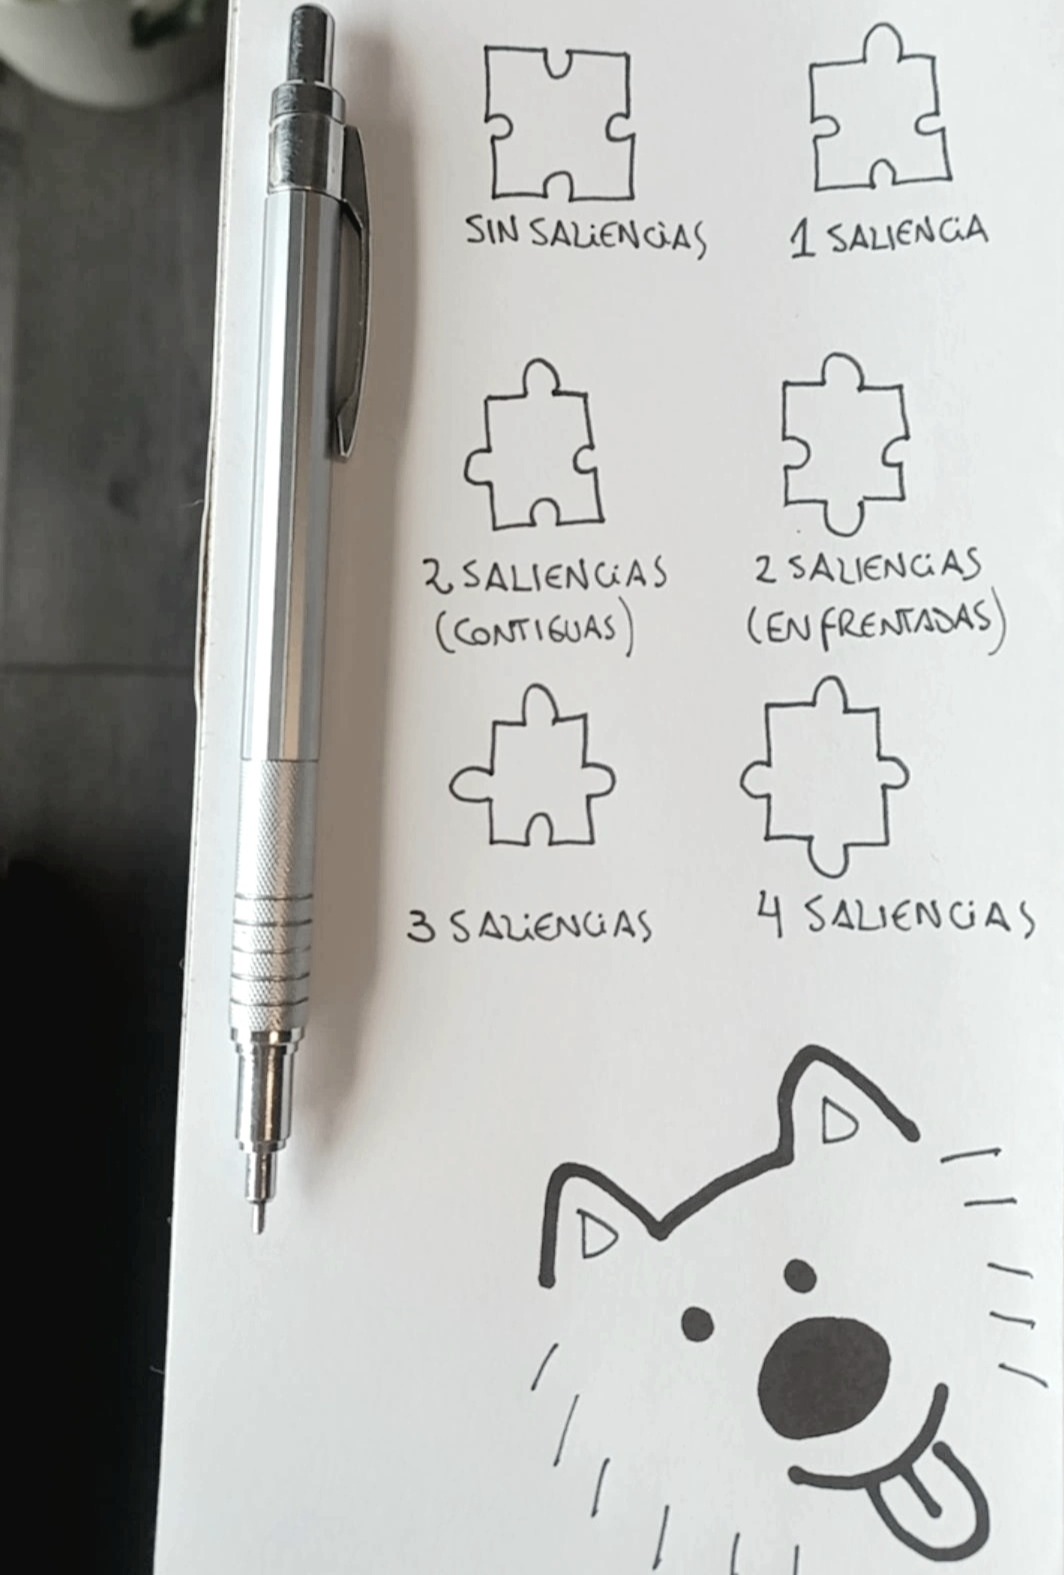 SIN SALIENCIAS
1 SALIENCIA
2 SALIENCIAS
(CONTIGUAS)
2 SALIENCIAS
(ENFRENTADAS)
3 SALIENCIAS
4 SALIENCIAS